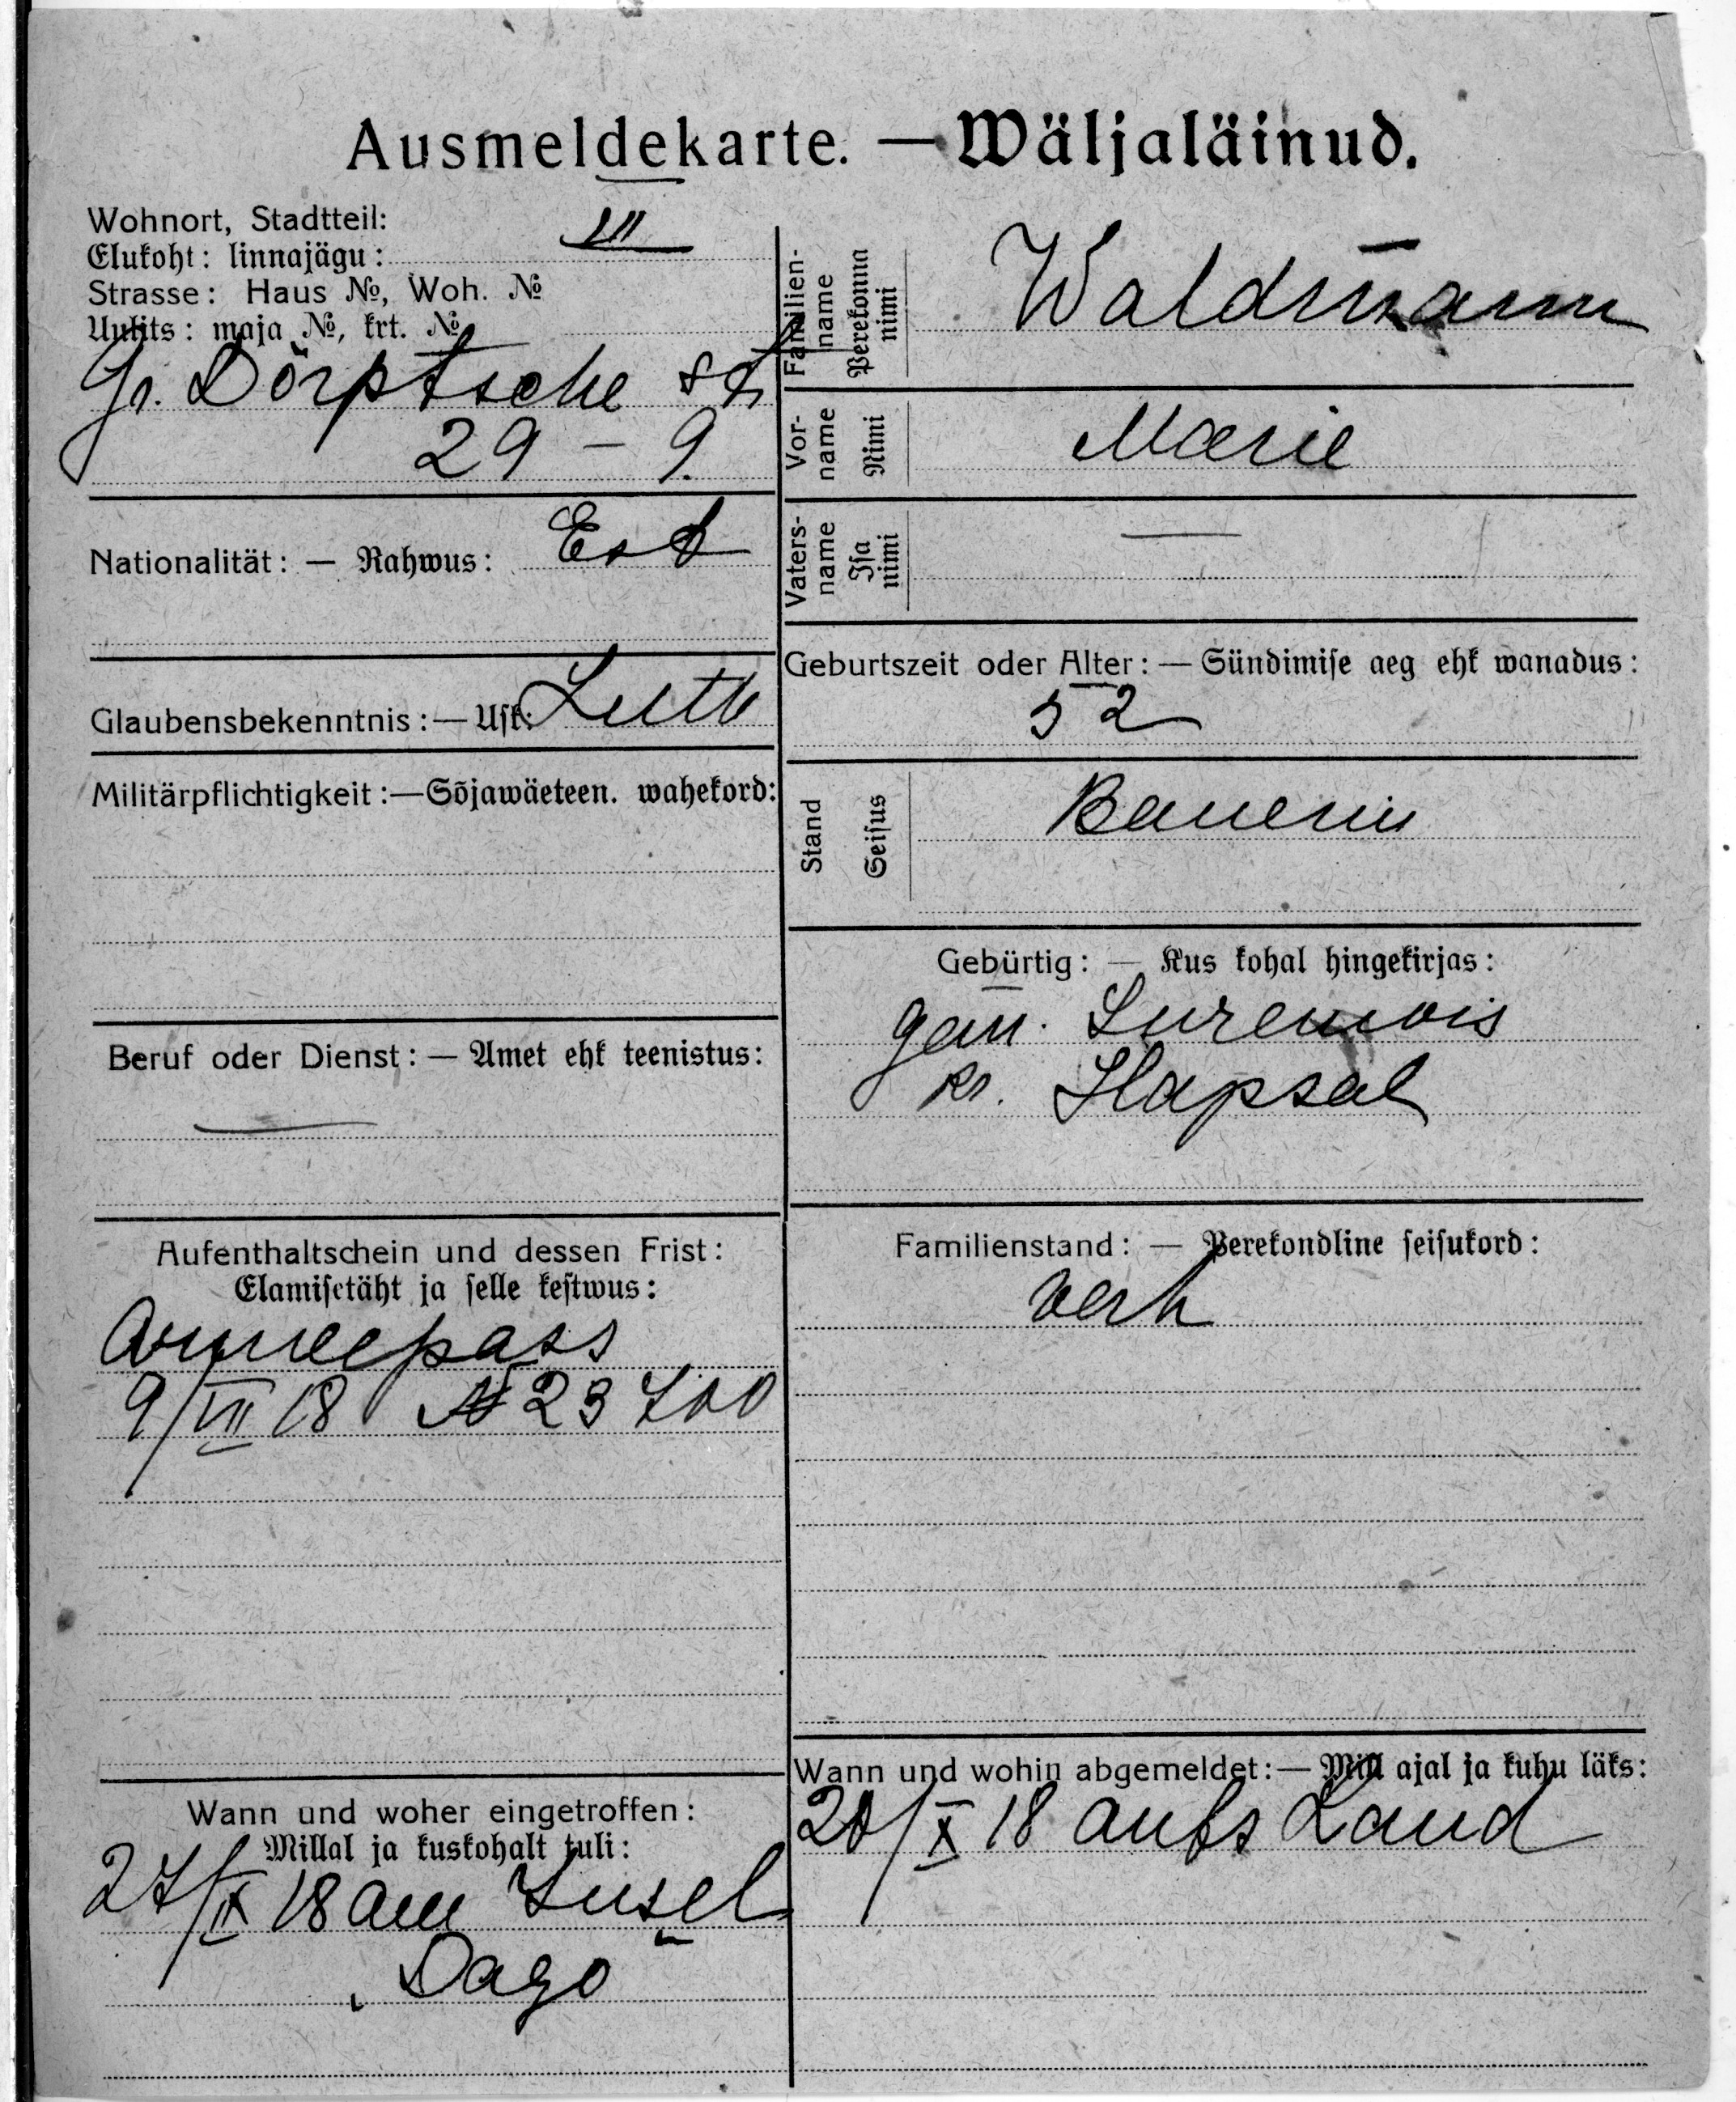 Ausmeldekarte. — Wäljaläinud.
Wohnort, Stadtteil:
Elukoht: linnajägu: III
Strasse: Haus №, Woh. №
Uulits: maja №, krt. №
Gr. Dörptsche str
29 – 9.
Nationalität: — Rahwus: Est
Glaubensbekenntnis: — Usk: Luth
Militärpflichtigkeit: — Sõjawäeteen. wahekord:
Beruf oder Dienst: — Amet ehk teenistus:
—
Aufenthaltschein und dessen Frist:
Elamisetäht ja selle kestwus:
Armeepass
9/VII 18 № 23
Wann und woher eingetroffen:
Millal ja kuskohalt tuli:
27/IX 18 aus Insel
Dago
Familien-
name
Perekonna
nimi
Waldmann
Vor-
name
Nimi
Marie
Vaters-
name
Isa
nimi
—
Geburtszeit oder Alter: — Sündimise aeg ehk wanadus:
52
Stand
Seisus
Bauerin
Gebürtig: — Kus kohal hingekirjas:
gem. Suremois
kr. Hapsal
Familienstand: — Perekondline seisukord:
verh
Wann und wohin abgemeldet: — Mill ajal ja kuhu läks:
20/X 18 aufs Land